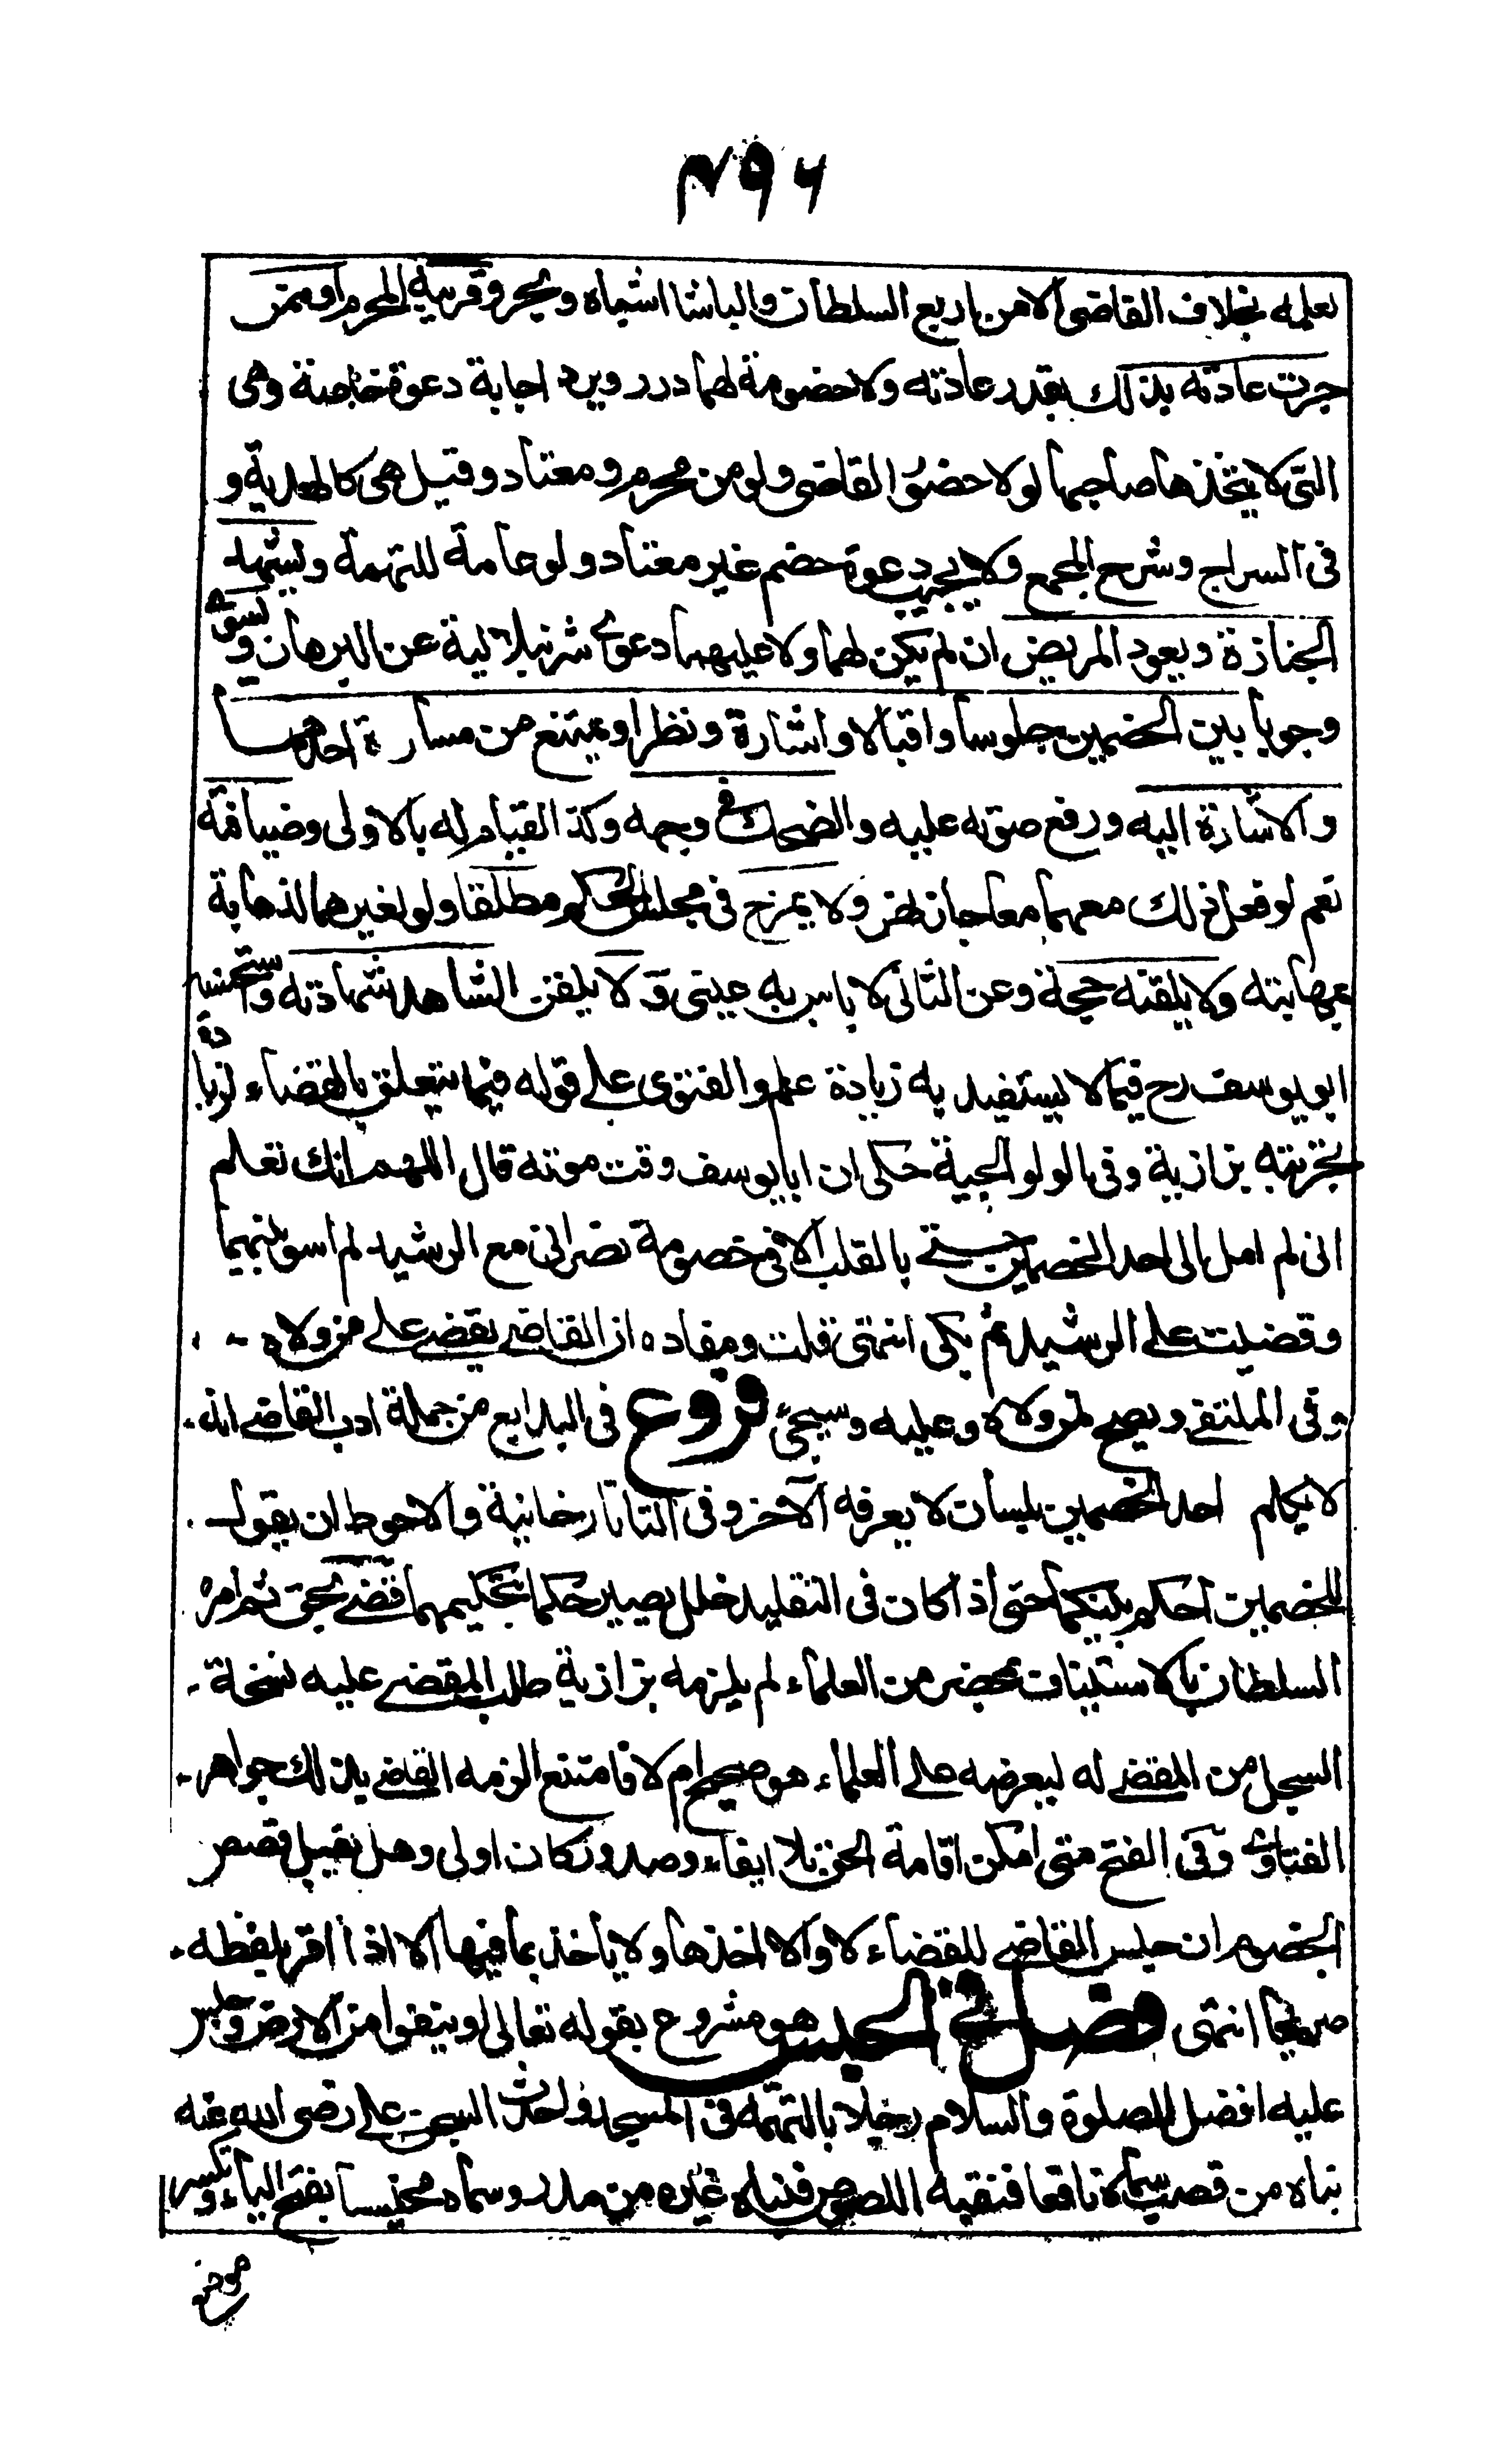 ۴۹۶
لعلمه بخلاف القاضى الا من اربع السلطان والباشا اشباه وبحر وقريبه المحرم او ممن
جرت عادته بذلك بقدر عادته ولا خصومة لهما درر ويرد اجابة دعوة خاصة وهى
التى لا يتخذها صاحبها لولا حضور القاضى ولو من محرم ومعتاد وقيل هى كالهدية و
فى السراج وشرح المجمع ولا يجيب دعوة خصم غير معتاد ولو عامة للتهمة ويشهد
الجنازة ويعود المريض ان لم يكن لهما ولا عليهما دعوى شرنبلالية عن البرهان ويسوى
وجوبا بين الخصمين جلوسا واقبالا واشارة ونظرا ويمتنع من مسارة احدهما
والاشارة اليه ورفع صوته عليه والضحك فى وجهه وكذا القيام له بالاولى وضيافته
نعم لو فعل ذلك معهما معا جاز نهر ولا يمزح فى مجلس الحكم مطلقا ولو لغيرهما لذهابة
بمهابته ولا يلقنه حجة وعن الثانى لا باس به عينى و لا يلقن الشاهد شهادته واستحسنه
ابو يوسف رح فيما لا يستفيد به زيادة علم والفتوى على قوله فيما يتعلق بالقضاء لزيادة
تجربته بزازية وفى الولوالجية حكى ان ابا يوسف وقت موته قال اللهم انك تعلم
انى لم امل الى احد الخصمين حتى بالقلب الا فى خصومة نصرانى مع الرشيد لم اسو بينهما
وقضيت على الرشيد ثم بكى انتهى قلت ومفاده ان القاضى يقضى على من ولاه
وفى الملتقى ويصح لمن ولاه وعليه وسيجئ فروع فى البدايع من جملة ادب القاضى انه
لا يكلم احد الخصمين بلسان لا يعرفه الآخر وفى التاتارخانية والاحوط ان يقول
للخصمين احكم بينكما حتى اذا كان فى التقليد خلل يصير حكما بتحكيمهما قضى بحق ثم امره
السلطان بالاستيناف بمحضر من العلماء لم يلزمه بزازية طلب المقضى عليه نسخة
السجل من المقضى له ليعرضه على العلماء هو صحيح ام لا فامتنع الزمه القاضى بذلك جواهر
الفتاوى وفى الفتح متى امكن اقامة الحق بلا ايغار صدور كان اولى وهل يقبل قصص
الخصوم ان جلس القاضى للقضاء لا والا اخذها ولا ياخذ بما فيها الا اذا اقر بلفظه
صريحا انتهى فصل فى الحبس هو مشروع بقوله تعالى او ينفوا من الارض وحبس
عليه افضل الصلوة والسلام رجلا بالتهمة فى المسجد واحدث السجن على رضى الله عنه
بناه من قصب سماه نافعا فنقبه اللصوص فبناه غيره من مدر وسماه مخيسا بفتح الياء وتكسر